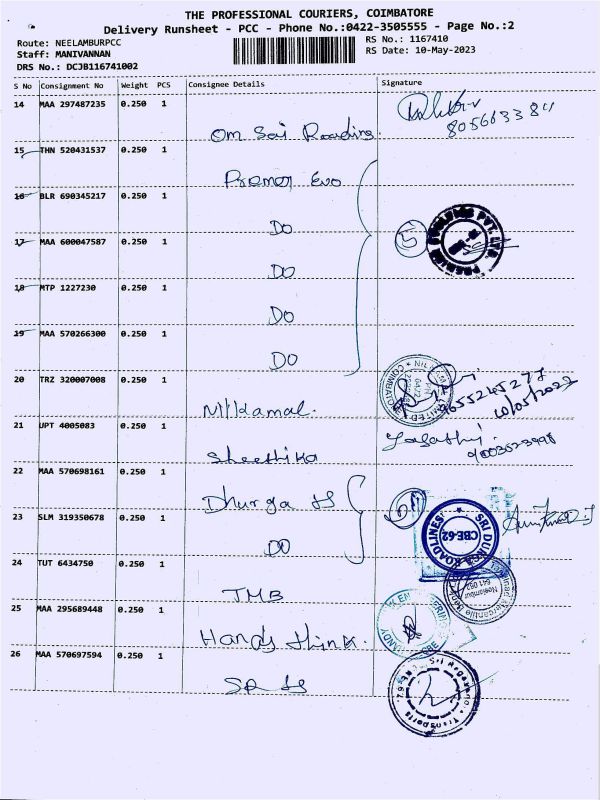 THE PROFESSIONAL COURIERS, COIMBATORE
Delivery Runsheet - PCC - Phone No.:0422-3505555 - Page No.:2
Route: NEELAMBURPCC
RS No.: 1167410
Staff: MANIVANNAN
RS Date: 10-May-2023
DRS No.: DCJB116741002
S No Consignment No Weight PCS Consignee Details Signature
14 MAA 297487235 0.250 1
Om Sai Roading
15 THN 520431537 0.250 1
Premer Evo
16 BLR 690345217 0.250 1
DO
17 MAA 600047587 0.250 1
DO
5
18 MTP 1227230 0.250 1
DO
19 MAA 570266300 0.250 1
DO
20 TRZ 320007008 0.250 1
Nilkamal.
9655245277
10/05/2022
21 UPT 4005083 0.250 1
22 MAA 570698161 0.250 1
Dhurga ts
23 SLM 319350678 0.250 1
DO
SRI DURGA ROADLINES
CBE-62
24 TUT 6434750 0.250 1
TMB
Neelambur
641 062
25 MAA 295689448 0.250 1
Hands think.
26 MAA 570697594 0.250 1
SR ts